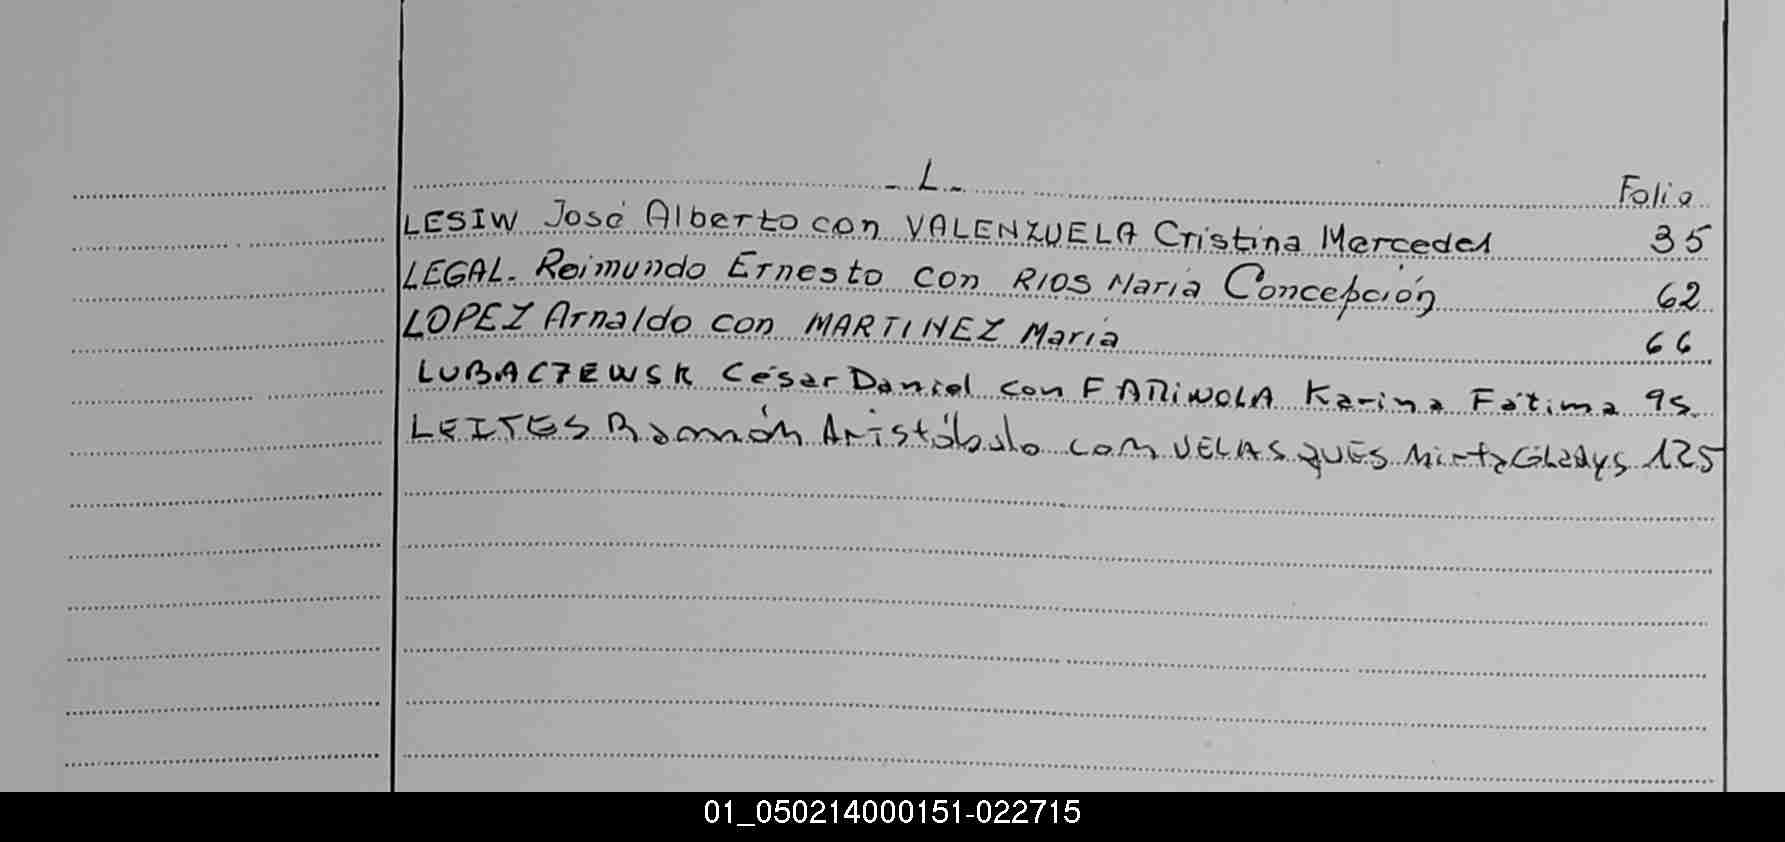 - L -
Folio
LESIW José Alberto con VALENZUELA Cristina Mercedes 35
LEGAL. Reimundo Ernesto con RIOS María Concepción 62
LOPEZ Arnaldo con MARTINEZ María 66
LUBACZEWSK César Daniel con FARIÑOLA Karina Fátima 95
LEITES Ramón Aristóbulo con VELASQUES Mirta Gladys 125
01_050214000151-022715